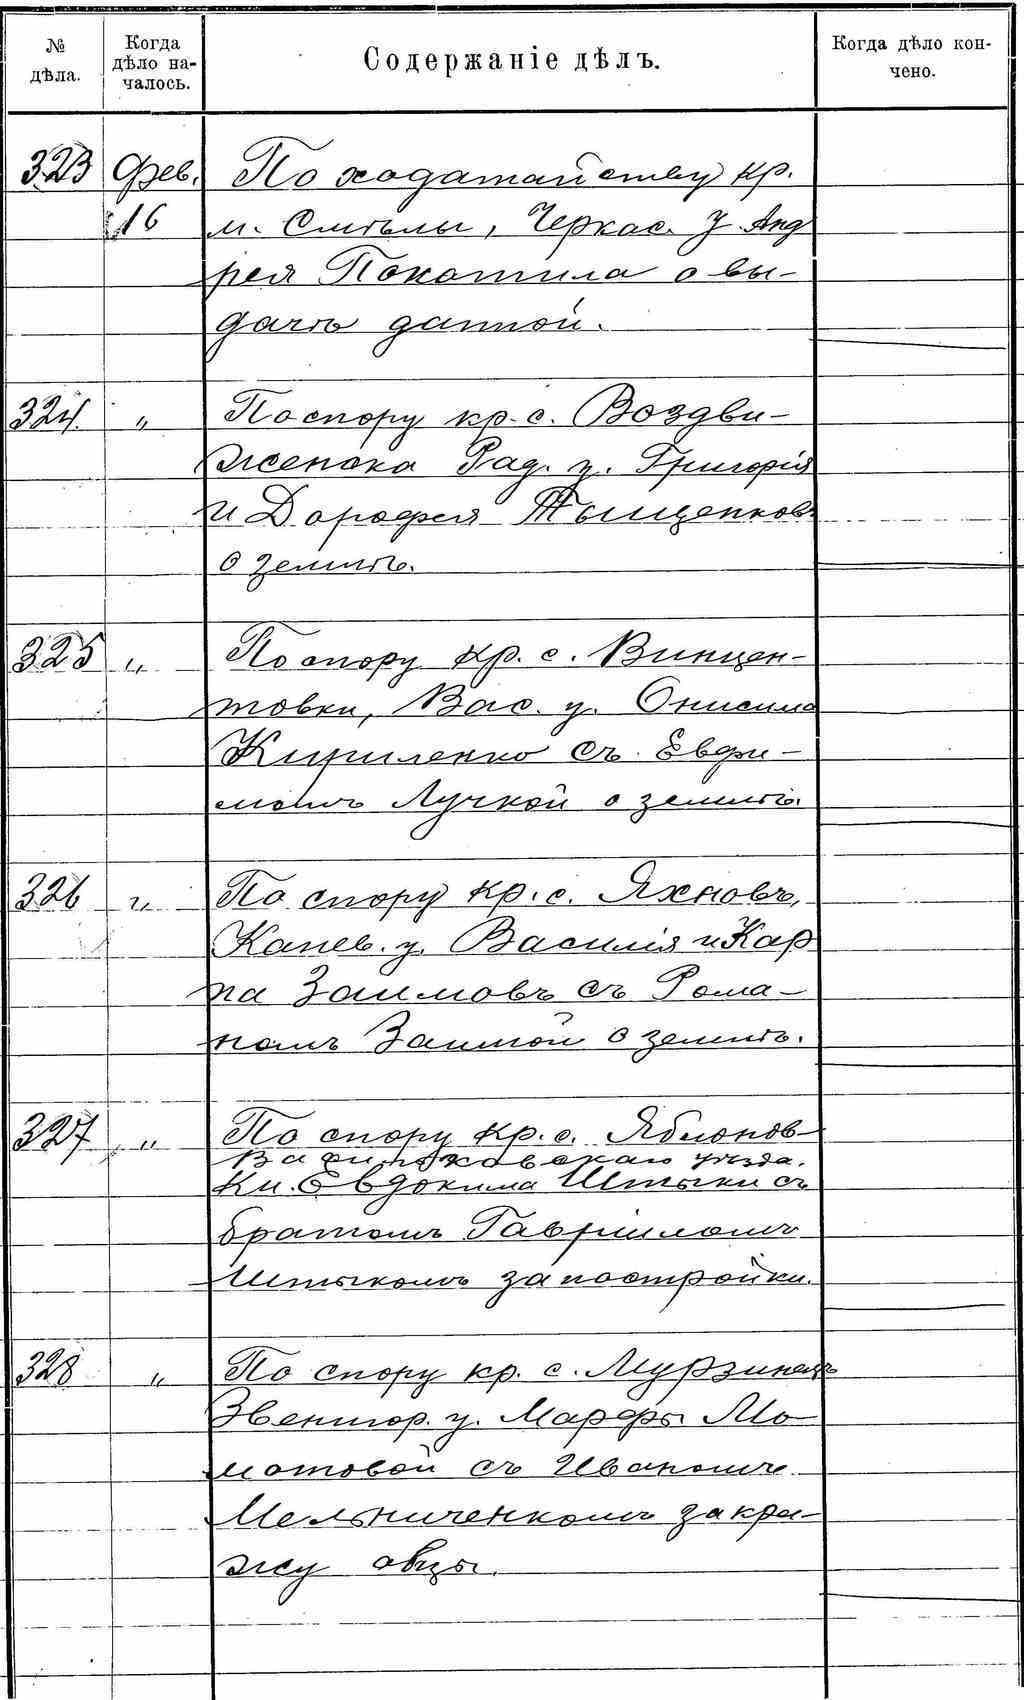 № дѣла.
Когда дѣло началось.
Содержаніе дѣлъ.
Когда дѣло кончено.
323 Фев. По ходатайству кр.
16 м. Смѣлы, Черкас. у. Анд
рея Покотила о вы-
дачѣ данной.
324. " По спору кр. с. Воздви-
женска Рад. у. Григорія
и Дорофея Тыщенков
о землѣ.
325 " По спору кр. с. Винцен-
товки, Вас. у. Онисима
Кириленко съ Евфи-
момъ Лучкой о землѣ.
326 " По спору кр. с. Яхновъ,
Канев. у. Василія и Кар
па Заимовъ съ Рома-
номъ Заимой о землѣ.
327 " По спору кр. с. Яблонов-
Васильковскаго уѣзда.
ки. Евдокима Штыки съ
братомъ Гавріиломъ
Штыкомъ за постройки.
328 " По спору кр. с. Мурзинецъ
Звенигор. у. Марфы Мо
мотовой съ Иваномъ
Мельниченкомъ за кра-
жу овцы.